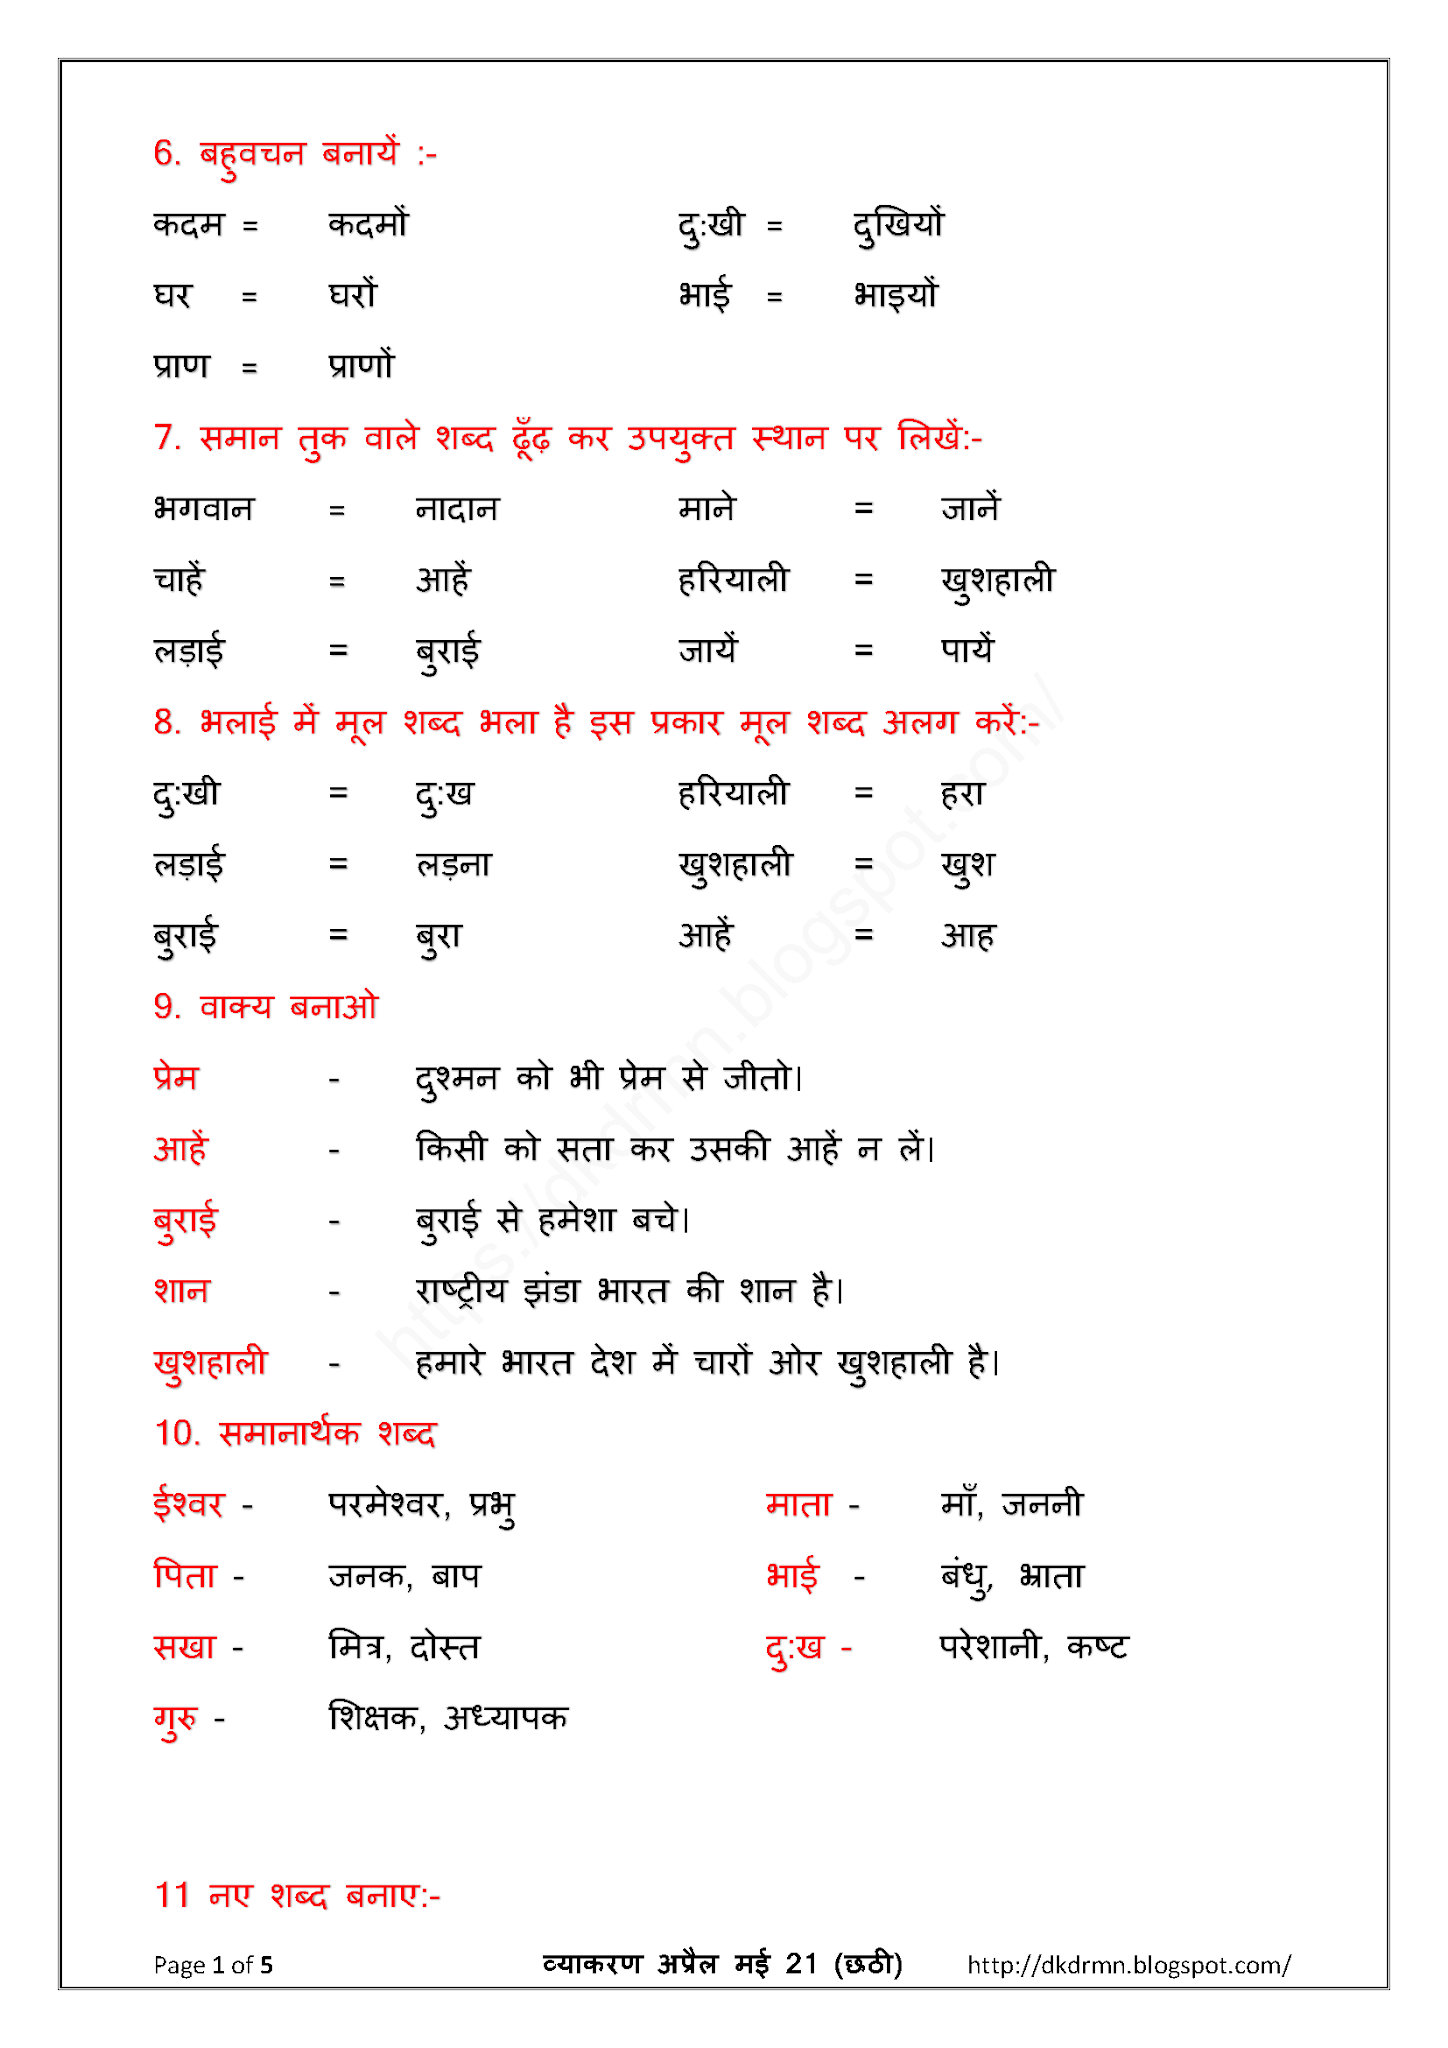 6. बहुवचन बनायें :-
कदम = कदमों दुःखी = दुखियों
घर = घरों भाई = भाइयों
प्राण = प्राणों
7. समान तुक वाले शब्द ढूँढ़ कर उपयुक्त स्थान पर लिखें:-
भगवान = नादान माने = जानें
चाहें = आहें हरियाली = खुशहाली
लड़ाई = बुराई जायें = पायें
8. भलाई में मूल शब्द भला है इस प्रकार मूल शब्द अलग करें:-
दु:खी = दु:ख हरियाली = हरा
लड़ाई = लड़ना खुशहाली = खुश
बुराई = बुरा आहें = आह
9. वाक्य बनाओ
प्रेम - दुश्मन को भी प्रेम से जीतो।
आहें - किसी को सता कर उसकी आहें न लें।
बुराई - बुराई से हमेशा बचे।
शान - राष्ट्रीय झंडा भारत की शान है।
खुशहाली - हमारे भारत देश में चारों ओर खुशहाली है।
10. समानार्थक शब्द
ईश्वर - परमेश्वर, प्रभु माता - माँ, जननी
पिता - जनक, बाप भाई - बंधु, भ्राता
सखा - मित्र, दोस्त दु:ख - परेशानी, कष्ट
गुरु - शिक्षक, अध्यापक
11 नए शब्द बनाए:-
Page 1 of 5 व्याकरण अप्रैल मई 21 (छठी) http://dkdrmn.blogspot.com/
https://dkdrmn.blogspot.com/